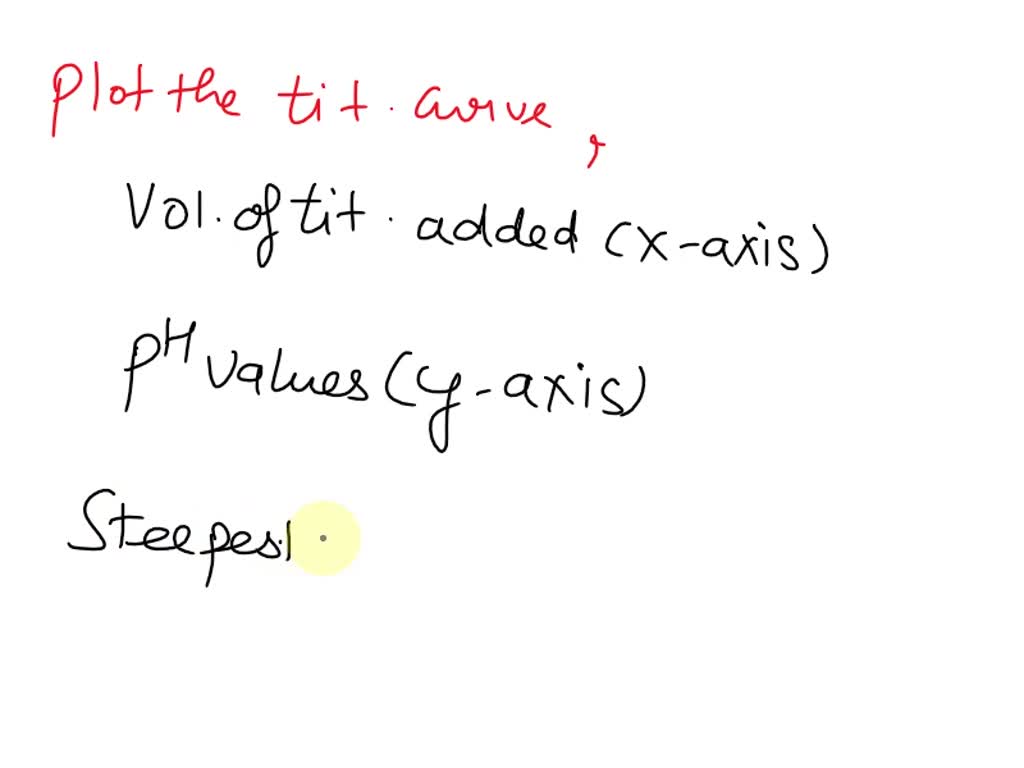 Plot the tit. curve,
Vol. of tit. added (x-axis)
pH values (y-axis)
Steepes